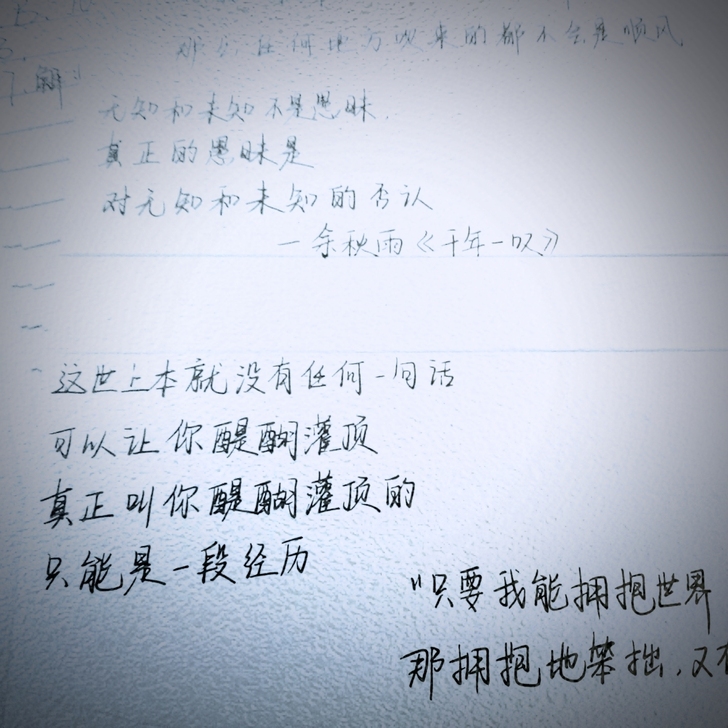 那么任何地方吹来的都不会是顺风
7.解
无知和未知不是愚昧.
真正的愚昧是
对无知和未知的否认
—余秋雨《千年一叹》
这世上本就没有任何一句话
可以让你醍醐灌顶
真正叫你醍醐灌顶的
只能是一段经历
"只要我能拥抱世界
那拥抱地笨拙,又